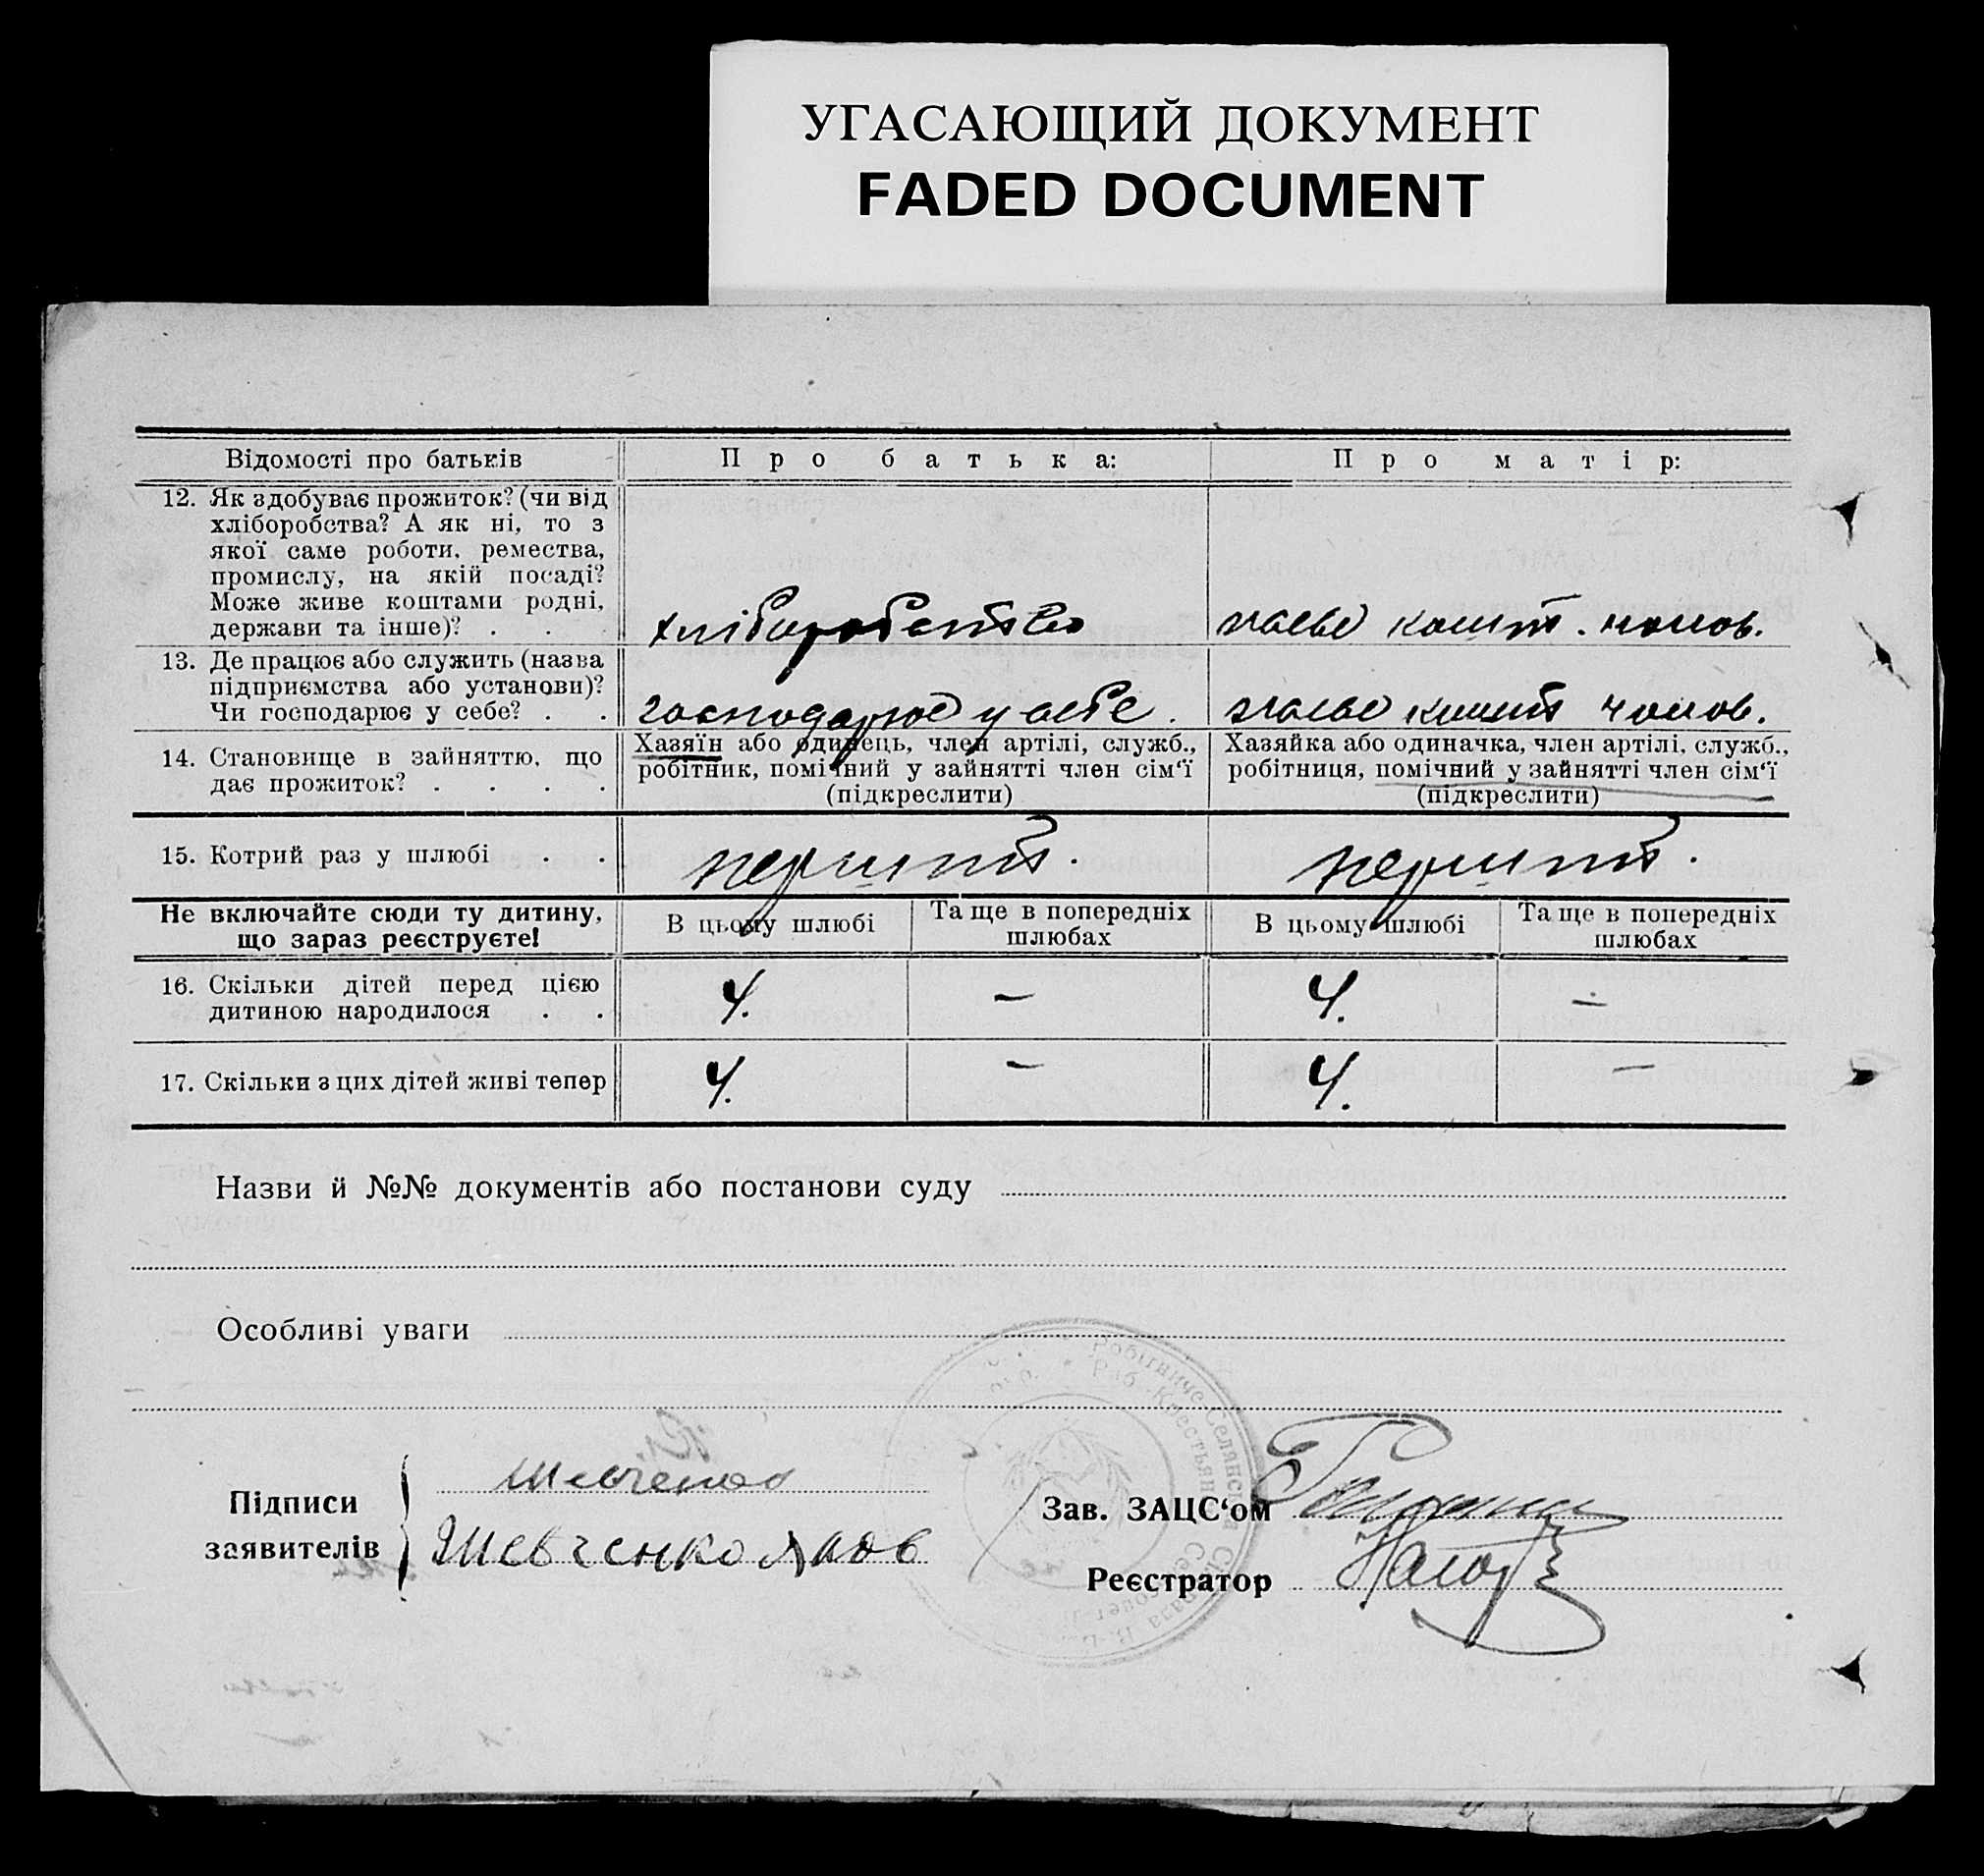 УГАСАЮЩИЙ ДОКУМЕНТ
FADED DOCUMENT
Відомості про батьків
Про батька:
Про матір:
12. Як здобуває прожиток? (чи від
хліборобства? А як ні, то з
якої саме роботи, ремества,
промислу, на якій посаді?
Може живе коштами родні,
держави та інше)? . .
хліборобство
кошт. чолов.
13. Де працює або служить (назва
підприємства або установи)?
Чи господарює у себе? . .
господарює у себе.
кошт чолов.
14. Становище в зайняттю, що
дає прожиток? . . . .
Хазяїн або одинець, член артілі, служб.,
робітник, помічний у зайнятті член сім‘ї
(підкреслити)
Хазяйка або одиначка, член артілі, служб.,
робітниця, помічний у зайнятті член сім‘ї
(підкреслити)
15. Котрий раз у шлюбі . .
перший.
перший.
Не включайте сюди ту дитину,
що зараз реєструєте!
В цьому шлюбі
Та ще в попередніх
шлюбах
В цьому шлюбі
Та ще в попередніх
шлюбах
16. Скільки дітей перед цією
дитиною народилося . .
4.
–
4.
–
17. Скільки з цих дітей живі тепер
4.
–
4.
–
Назви й №№ документів або постанови суду
Особливі уваги
Робітниче-Селянськ
Раб.-Крестьянс
Підписи
заявителів
Шевченко
Шевченко Яков
Зав. ЗАЦС‘ом
Реєстратор